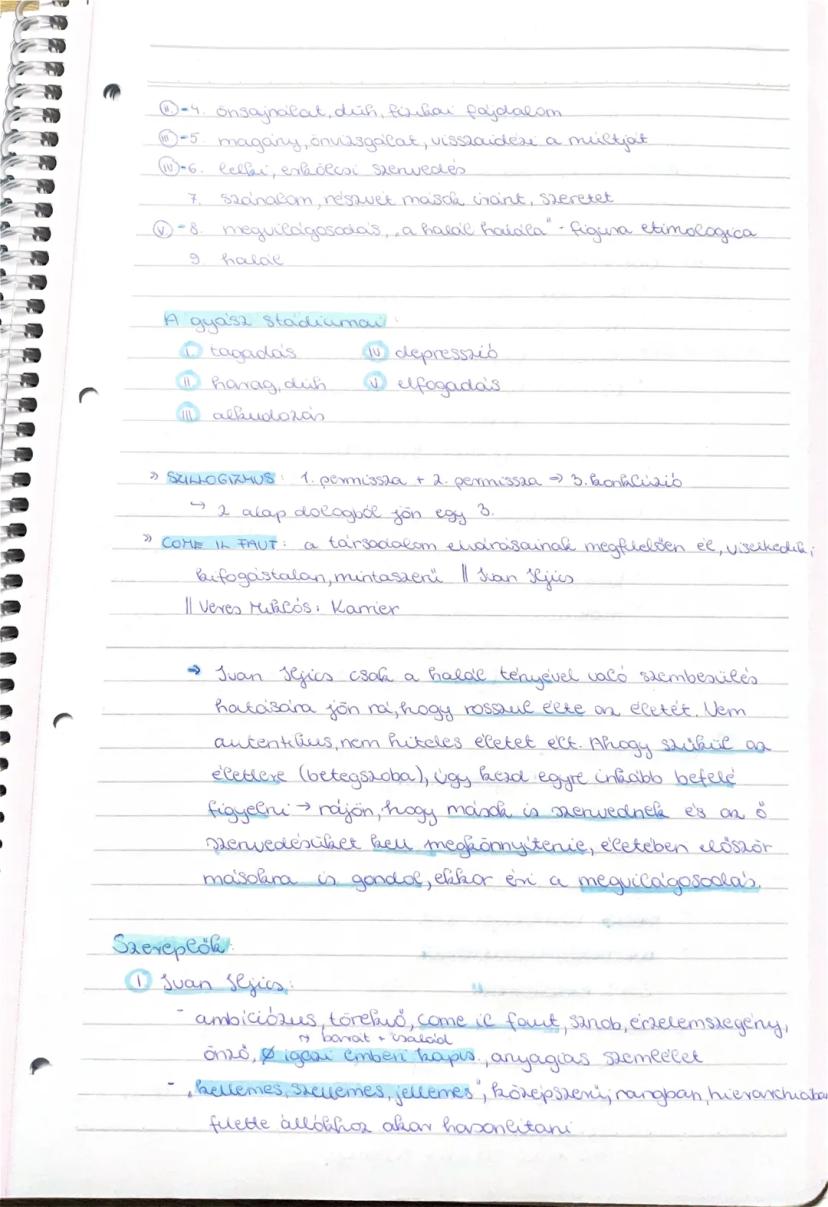 II -4. önsajnálat, düh, fizikai fájdalom
III -5. magány, önvizsgálat, visszaidézi a múltját
IV -6. lelki, erkölcsi szenvedés
7. szánalom, részvét mások iránt, szeretet
V -8. megvilágosodás, „a halál halála" - figura etimologica
9. halál
A gyász stádiumai:
I tagadás IV depresszió
II harag, düh V elfogadás
III alkudozás
» SZILLOGIZMUS: 1. permissza + 2. permissza → 3. konklúzió
↳ 2 alap dologból jön egy 3.
» COME IL FAUT: a társadalom elvárásainak megfelelően él, viselkedik,
kifogástalan, mintaszerű || Ivan Iljics
|| Veres Miklós: Karrier
→ Ivan Iljics csak a halál tényével való szembesülés
hatására jön rá, hogy rosszul élte az életét. Nem
autentikus, nem hiteles életet élt. Ahogy szűkül az
élettere (betegszoba), úgy kezd egyre inkább befelé
figyelni → rájön, hogy mások is szenvednek és az ő
szenvedésüket kell megkönnyítenie, életében először
másokra is gondol, ekkor éri a megvilágosodás.
Szereplők:
① Ivan Iljics:
- ambiciózus, törekvő, come il faut, sznob, érzelemszegény,
↱ barát + család
önző, Ø igazi emberi kapcs., anyagias szemlélet
- „kellemes, szellemes, jellemes", középszerű, rangban, hierarchiában
felette állókhoz akar hasonlítani